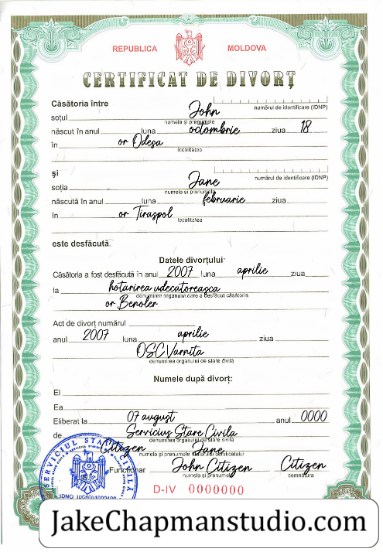 REPUBLICA MOLDOVA
CERTIFICAT DE DIVORȚ
Căsătoria între
soțul John numărul de identificare (IDNP)
numele și prenumele
născut în anul luna octombrie ziua 18
în or Odesa
localitatea
și
soția Jane numărul de identificare (IDNP)
numele și prenumele
născută în anul luna februarie ziua
în or Tiraspol
localitatea
este desfăcută.
Datele divorțului:
Căsătoria a fost desfăcută în anul 2007 luna aprilie
la hotarirea udecatoreasca
denumirea organului care a desfăcut căsătoria
or Benoler
Act de divorț numărul
anul 2007 luna aprilie ziua
OSC Varnita
denumirea organului de stare civilă
Numele după divorț:
El
Ea
Eliberat la 07 august anul 0000
de Serviciul Stare Civila
denumirea organului de stare civilă
Citizen Jane
numele și prenumele
Funcționar John Citizen Citizen
numele și prenumele semnătura
SERVICIUL STARE CIVILĂ
D-IV 0000000
JakeChapmanstudio.com